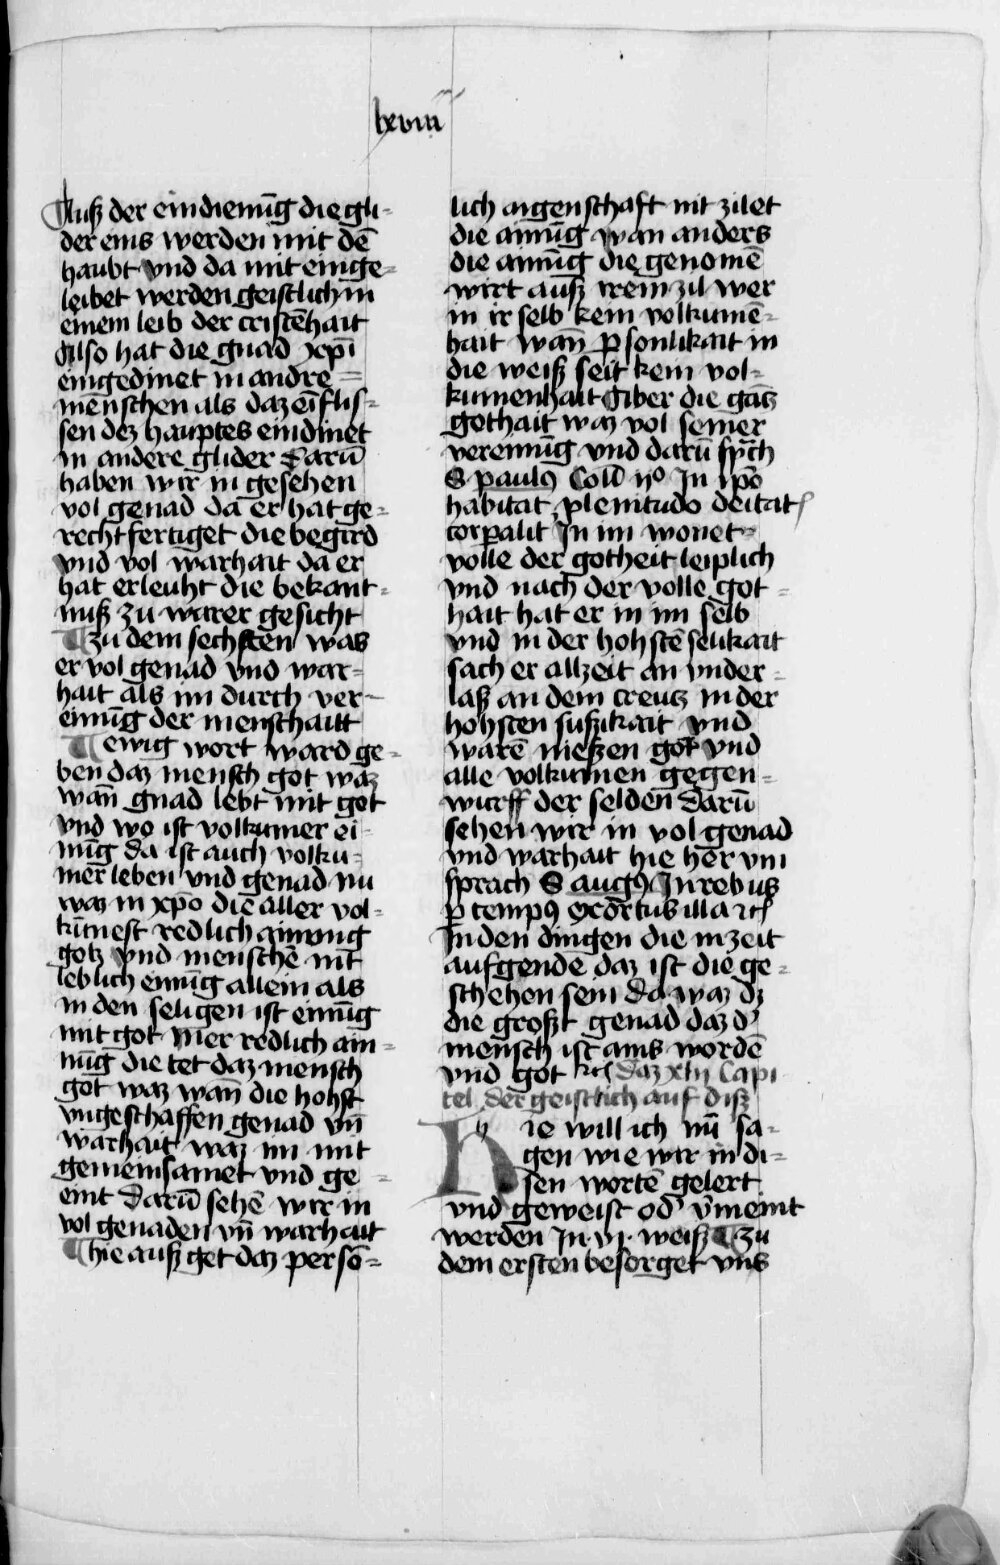 lxviii
Auß der eindienūg die gli-
der eins werden mit dē
haubt vnd da mit einge-
leibet werden geistlich in
einem leib der cristēhait
Also hat die gnad xp̄i
eingedinet in andre
menschen als daz eīflis-
sen dez hauptes eindinet
in andere glider Darū
haben wir in gesehen
vol genad da er hat ge-
rechtfertiget die begird
vnd vol warhait da er
hat erleuht die bekant-
nuß zu warer gesicht
¶ zu dem sechsten was
er vol genad vnd war-
hait als im durch ver-
einūg der menschaitt
¶ ewig wort ward ge-
ben daz mensch got waz
wān gnad lebt mit got
vnd wo ist volkumer ei-
nūg da ist auch volku-
mer leben vnd genad nu
waz in xp̄o die aller vol-
kūnest redlich ainung
gotz vnd menschē nit
leblich einūg allein als
in den seligen ist einūg
mit got Mer redlich ain-
nūg die tet daz mensch
got waz wān die hohst
vngeschaffen genad vn̄
warhait waz im mit
gemeinsamet vnd ge-
eint Darū sehē wir in
vol genaden vn̄ warhait
¶ hie auß get daz persō-
lich aigenschaft nit zilet
die ainūg wan anders
die ainūg die genomē
wirt auß irem zil wer
in ir selb kein volkumē-
hait wān ꝑsonlikait in
die weiß seit kein vol-
kumenhait Aber die gātz
gothait waz vol seiner
vereinūg vnd darū sp̄ch
S paulꝰ Coll̄ ijº In ip̄o
habitat plenitudo deitatꝭ
corꝑalit In im wonet
volle der gotheit leiplich
vnd nach der volle got-
hait hat er in im selb
vnd in der hohstē selikait
sach er allzeit an vnder-
laß an dem creutz in der
hohsten sußikait vnd
warē nießen got vnd
alle volkumen gegen-
wurff der selden Darū
sehen wir in vol genad
vnd warhait hie her vm
sprach S augꝰ In rebus
ꝑ tempꝰ exortus illa ꝛcꝭ
In den dingen die in zeit
aufgende daz ist die ge-
schehen sein da waz dz
die großt genad daz dˀ
mensch ist ains wordē
vnd got ꝛcꝭ daz xlij Capi
tel der geistlich auf diß
Hie will ich nū sa-
gen wie wir in di-
sen wortē gelert
vnd geweist odˀ v̄meint
werden In vj weiß ¶ zu
dem ersten besorget vns